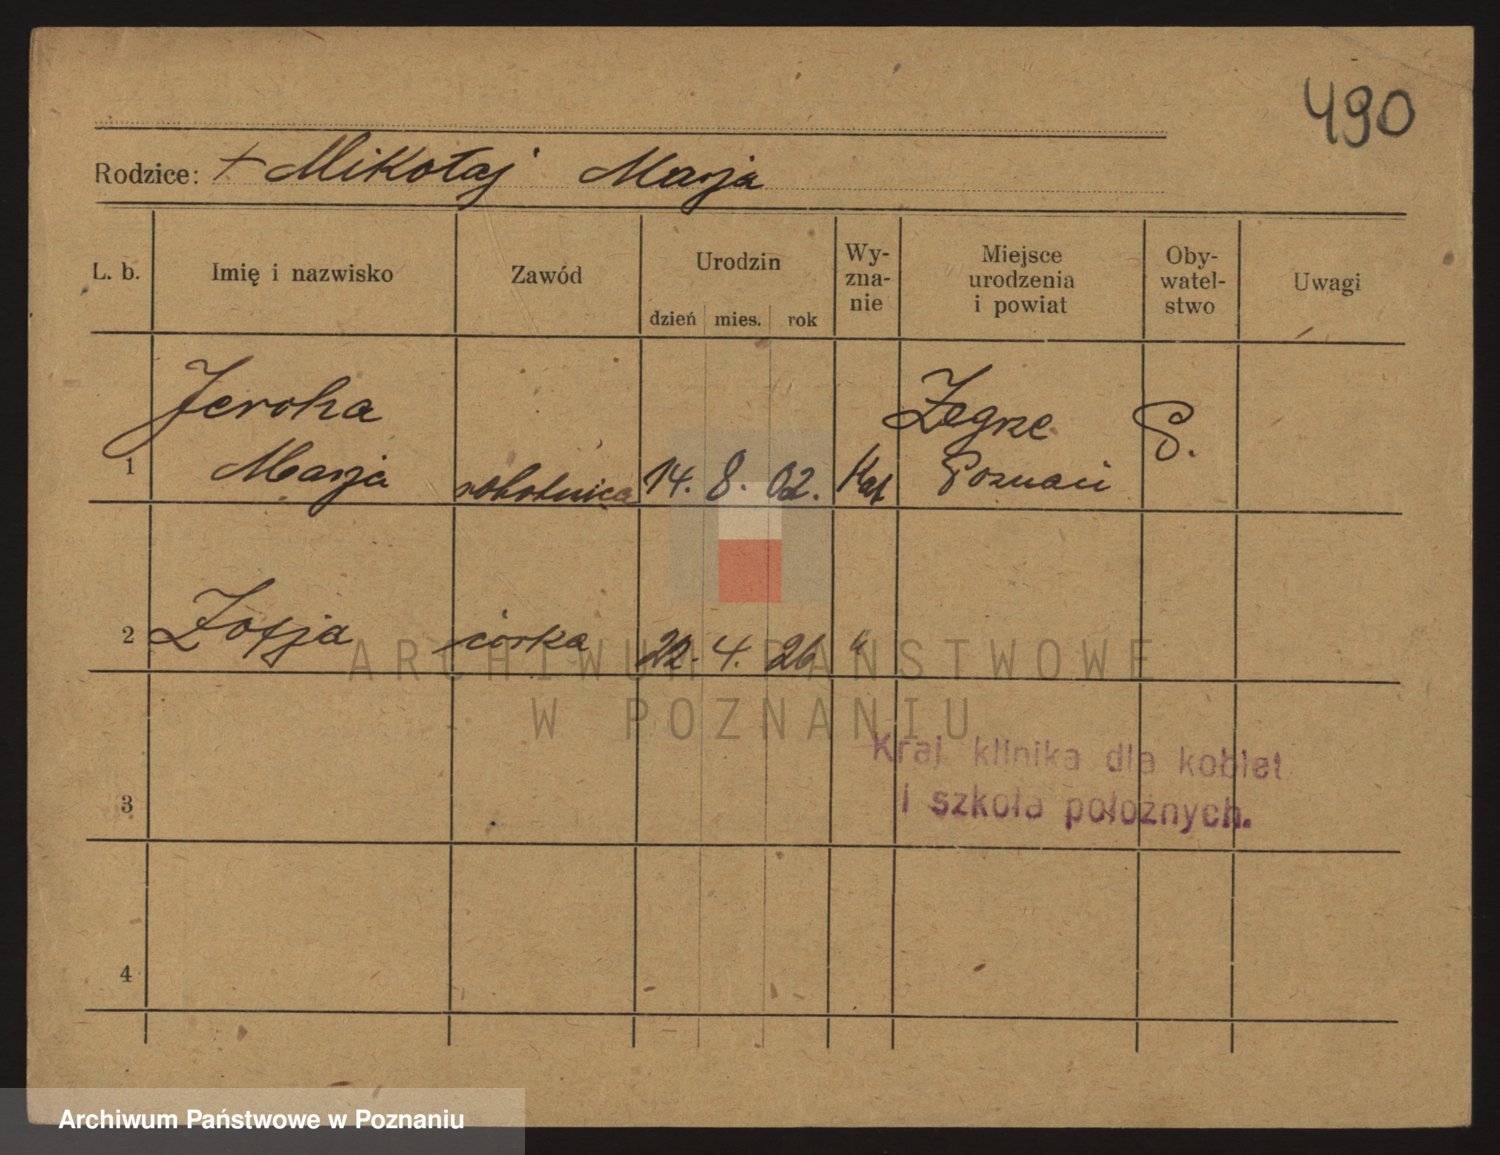 490
Rodzice: + Mikołaj Marja
L. b. Imię i nazwisko Zawód Urodzin Wy-zna-nie Miejsce urodzenia i powiat Oby-watel-stwo Uwagi
dzień mies. rok
Jeroha Zegrze P.
1 Marja robotnica 14. 8. 02. Kat Poznań
2 Zofja córka 22. 4. 26 "
ARCHIWUM PAŃSTWOWE
W POZNANIU
Kraj. klinika dla kobiet
i szkoła położnych.
3
4
Archiwum Państwowe w Poznaniu